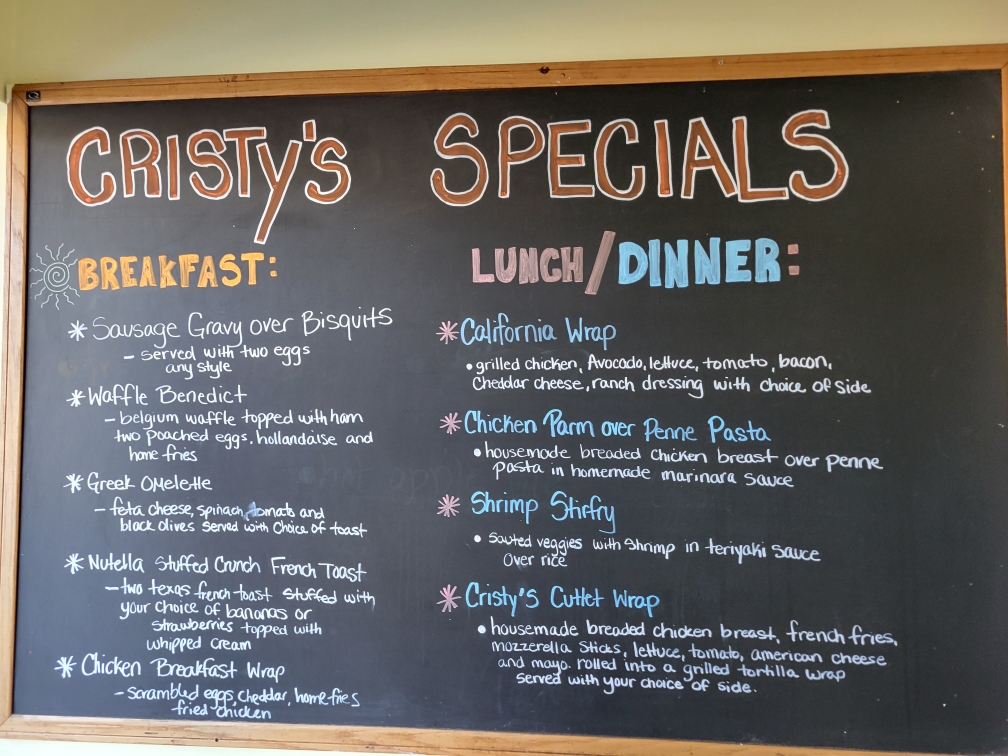 CRISTY'S SPECIALS
BREAKFAST:
* Sausage Gravy over Bisquits
- served with two eggs
any style
* Waffle Benedict
- belgium waffle topped with ham
two poached eggs, hollandaise and
home fries
* Greek Omelette
- feta cheese, spinach, tomato and
black olives served with choice of toast
* Nutella Stuffed Crunch French Toast
- two texas french toast stuffed with
your choice of bananas or
strawberries topped with
whipped cream
* Chicken Breakfast Wrap
- scrambled eggs, cheddar, homefries
fried chicken
LUNCH/DINNER:
* California Wrap
• grilled chicken, Avocado, lettuce, tomato, bacon,
Cheddar cheese, ranch dressing with choice of side
* Chicken Parm over Penne Pasta
• housemade breaded chicken breast over penne
pasta in homemade marinara sauce
* Shrimp Stirfry
• sauted veggies with shrimp in teriyaki sauce
over rice
* Cristy's Cutlet Wrap
• housemade breaded chicken breast, french fries,
mozzerella sticks, lettuce, tomato, american cheese
and mayo. rolled into a grilled tortilla wrap
served with your choice of side.